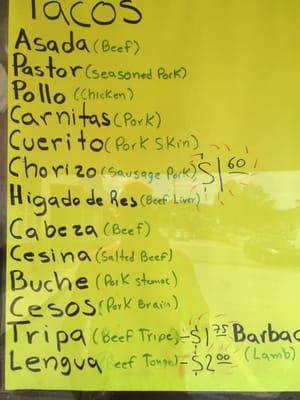 Tacos
Asada (Beef)
Pastor (Seasoned Pork)
Pollo (Chicken)
Carnitas (Pork)
Cuerito (Pork Skin)
Chorizo (Sausage Pork) $1 60
Higado de Res (Beef Liver)
Cabeza (Beef)
Cesina (Salted Beef)
Buche (Pork stomac)
Cesos (Pork Brain)
Tripa (Beef Tripe) - $1 75 Barbac
Lengua (Beef Tonge) - $2 00 (Lamb)